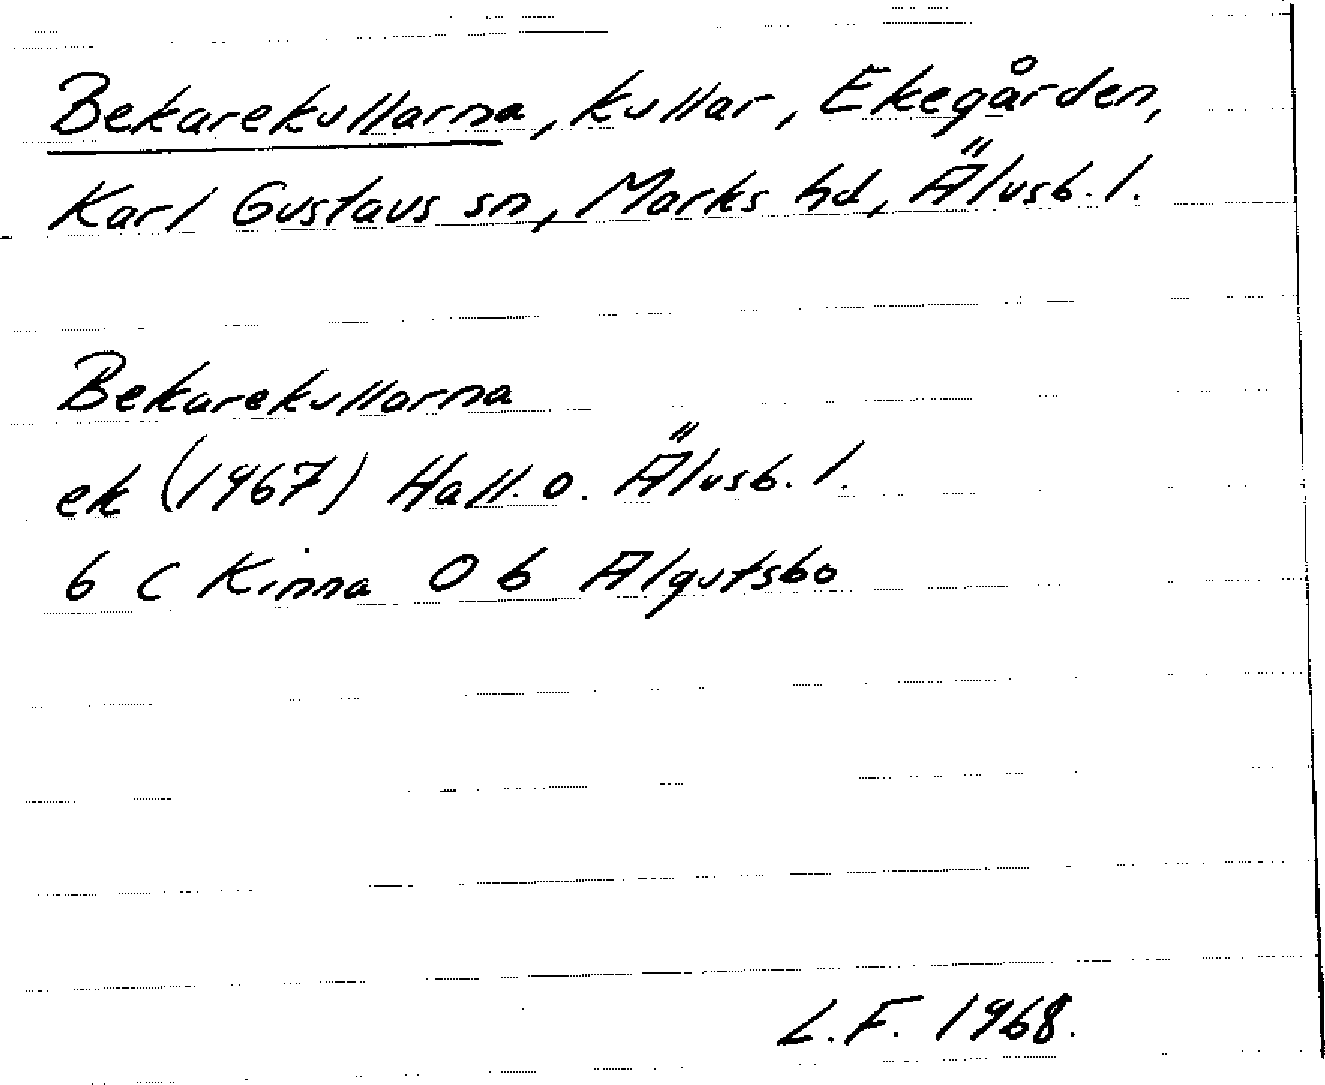 Bekarekullarna, kullar, Ekegården,
Karl Gustavs sn, Marks hd, Älvsb. l.
Bekarekullarna
ek (1967) Hall. o. Älvsb. l.
6 C Kinna 0 b Algutsbo
L.F. 1968.